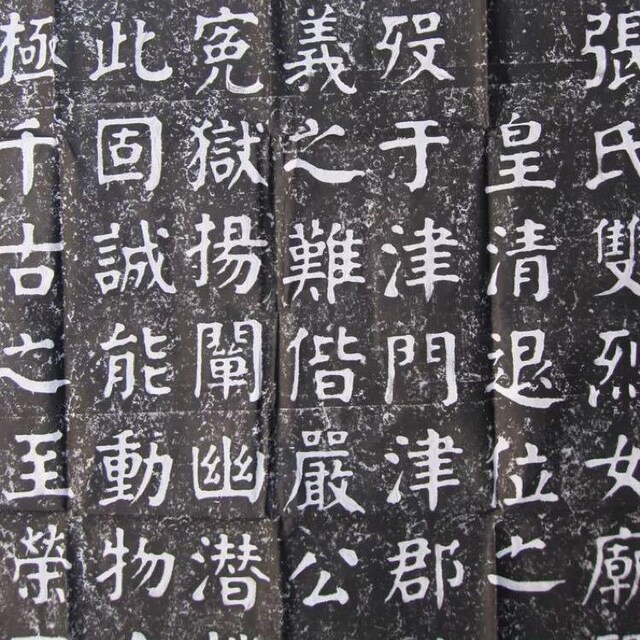 張氏雙烈女廟
皇清退位之
歿于津門津郡
義之難偕嚴公
冤獄揚闡幽潛
此固誠能動物
極千古之至榮